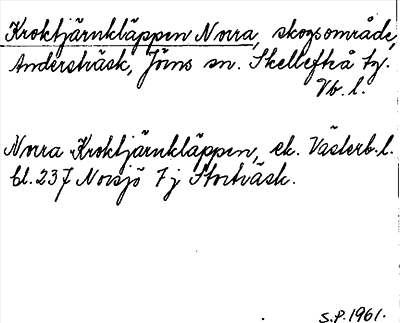 Kroktjärnkläppen Norra, skogsområde,
Andersträsk, Jörns sn. Skellefteå tg.
Vb. l.
Norra Kroktjärnkläppen, ek. Västerb. l.
bl. 237 Norsjö 7 j Storträsk.
S.P. 1961.